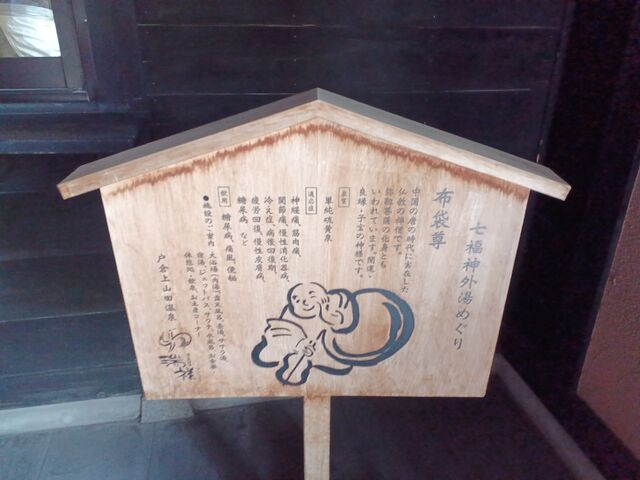 七福神外湯めぐり
布袋尊
中国の唐の時代に実在した
仏教の禅僧です。
弥勒菩薩の化身とも
いわれています。開運・
良縁・子宝の神様です。
泉質
単純硫黄泉
適応症
神経痛、筋肉痛、
関節痛、慢性消化器病、
冷え症、病後回復期、
疲労回復、慢性皮膚病、
糖尿病 など
飲用
糖尿病、痛風、便秘
●施設のご案内
大浴場(内湯)、露天風呂、壺湯、サウナ
宿湯、ジェットバス、サウナ、水風呂、お食事
休憩処・飲泉、お土産コーナー
戸倉上山田温泉